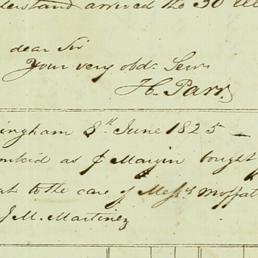 arrived the 30
dear Sir
Your very obd. Serv
H. Parr
ingham 8th June 1825 —
as p Margin bought
to the care of Messrs Moffat
J M. Martinez